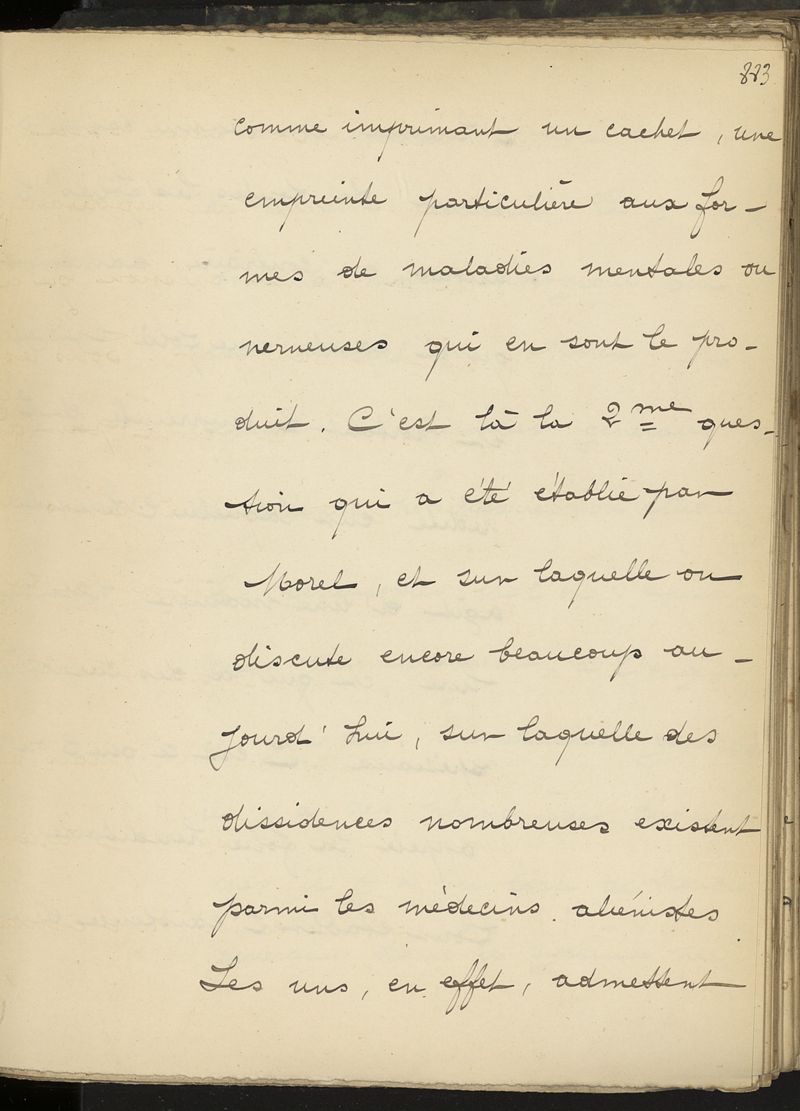 223
comme imprimant un cachet, une
empreinte particulière aux for-
mes de maladies mentales ou
nerveuses qui en sont le pro-
duit. C'est là la 2me ques-
tion qui a été établie par
Morel, et sur laquelle on
discute encore beaucoup au-
jourd'hui, sur laquelle des
dissidences nombreuses existent
parmi les médecins aliénistes
Les uns, en effet, admettent